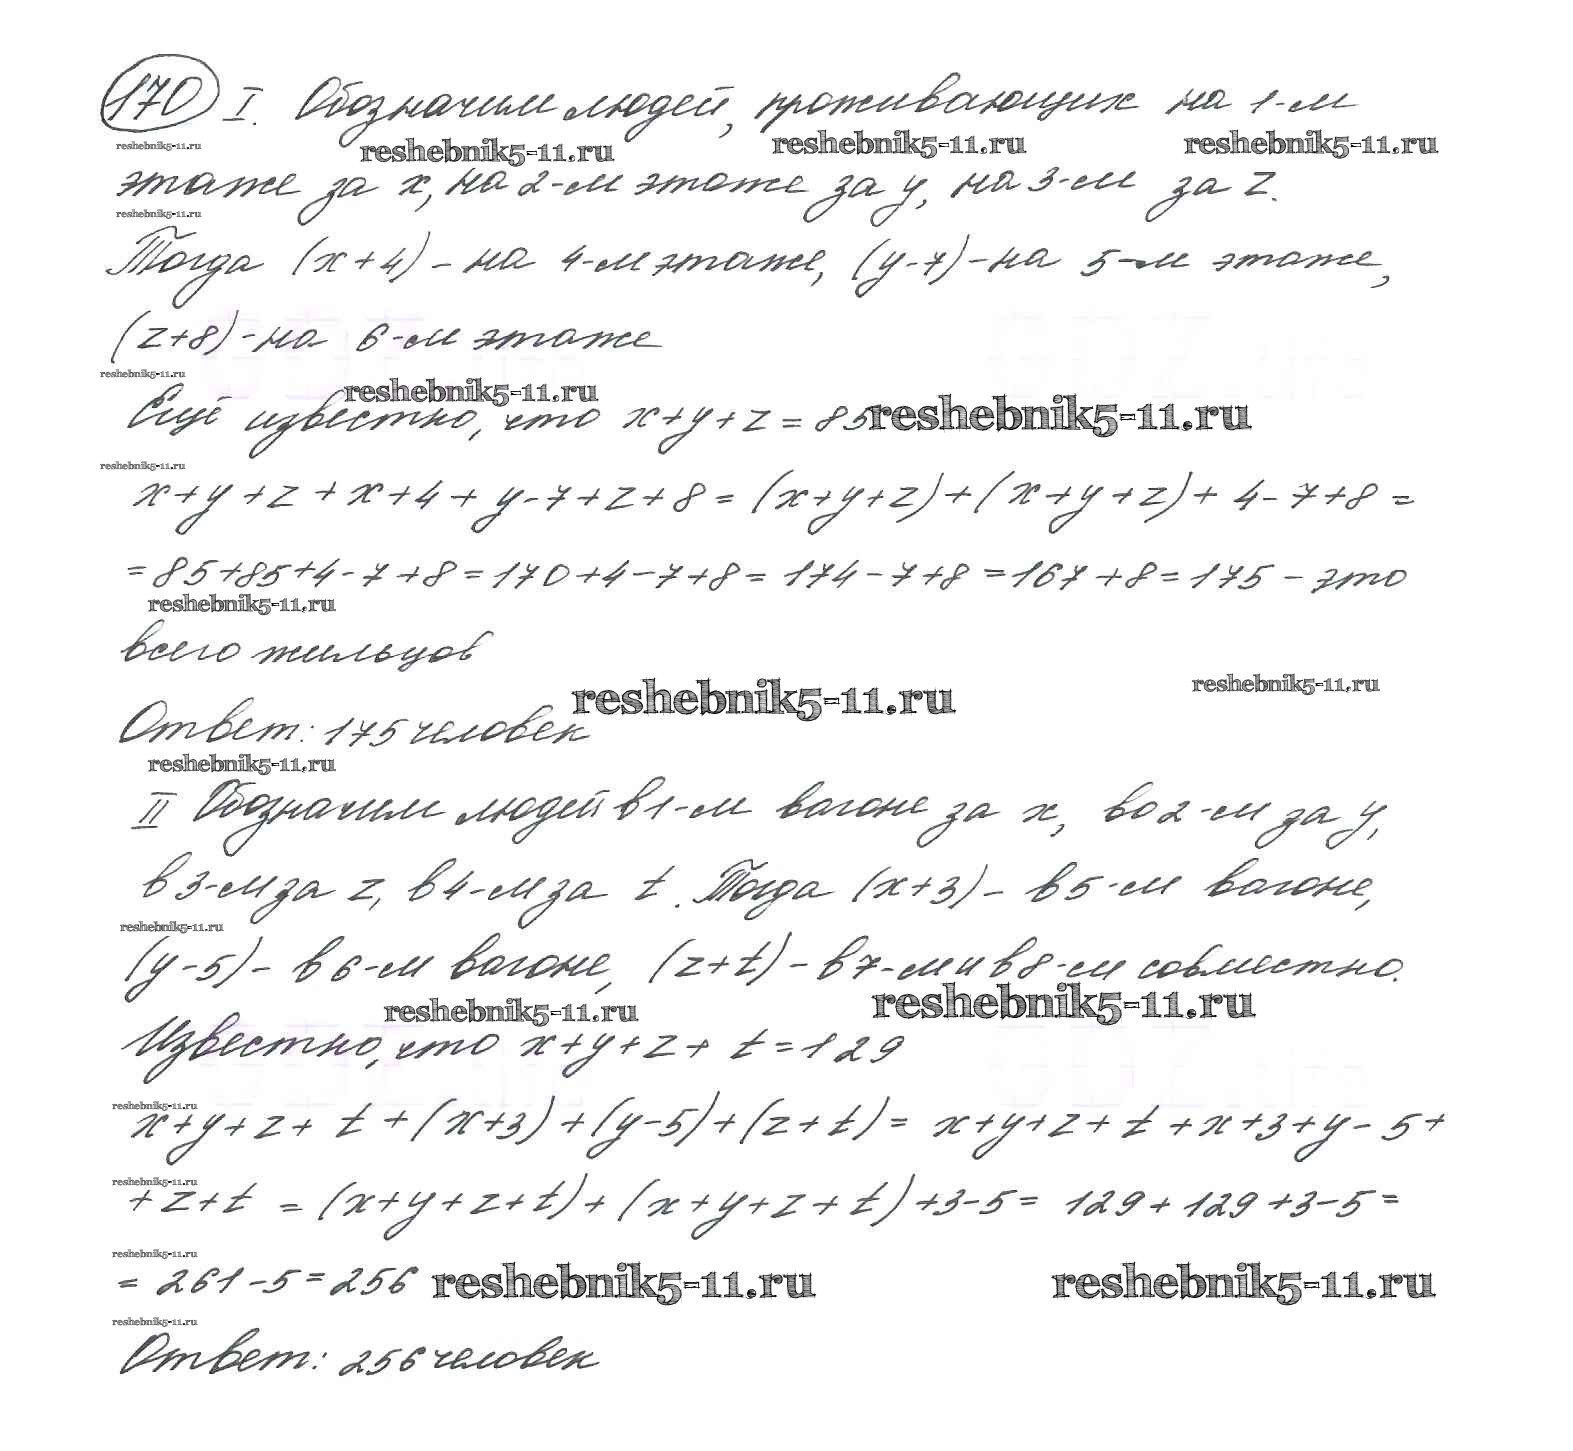 170 I. Обозначим людей, проживающих на 1-м
reshebnik5-11.ru reshebnik5-11.ru reshebnik5-11.ru reshebnik5-11.ru
этаже за x, на 2-м этаже за y, на 3-м за z.
reshebnik5-11.ru
Тогда (x+4) - на 4-м этаже, (y-7) - на 5-м этаже,
(z+8) - на 6-м этаже
reshebnik5-11.ru reshebnik5-11.ru
Ещё известно, что x+y+z=85 reshebnik5-11.ru
reshebnik5-11.ru
x+y+z+x+4+y-7+z+8=(x+y+z)+(x+y+z)+4-7+8=
=85+85+4-7+8=170+4-7+8=174-7+8=167+8=175 - это
reshebnik5-11.ru
всего жильцов
reshebnik5-11.ru reshebnik5-11.ru
Ответ: 175 человек
reshebnik5-11.ru
II Обозначим людей в 1-м вагоне за x, во 2-м за y,
в 3-м за z, в 4-м за t. Тогда (x+3) - в 5-м вагоне,
reshebnik5-11.ru
(y-5) - в 6-м вагоне, (z+t) - в 7-м и в 8-м совместно.
reshebnik5-11.ru reshebnik5-11.ru
Известно, что x+y+z+t=129
reshebnik5-11.ru
x+y+z+t+(x+3)+(y-5)+(z+t)= x+y+z+t+x+3+y-5+
reshebnik5-11.ru
+z+t =(x+y+z+t)+(x+y+z+t)+3-5= 129+129+3-5=
reshebnik5-11.ru
= 261-5=256 reshebnik5-11.ru reshebnik5-11.ru
reshebnik5-11.ru
Ответ: 256 человек